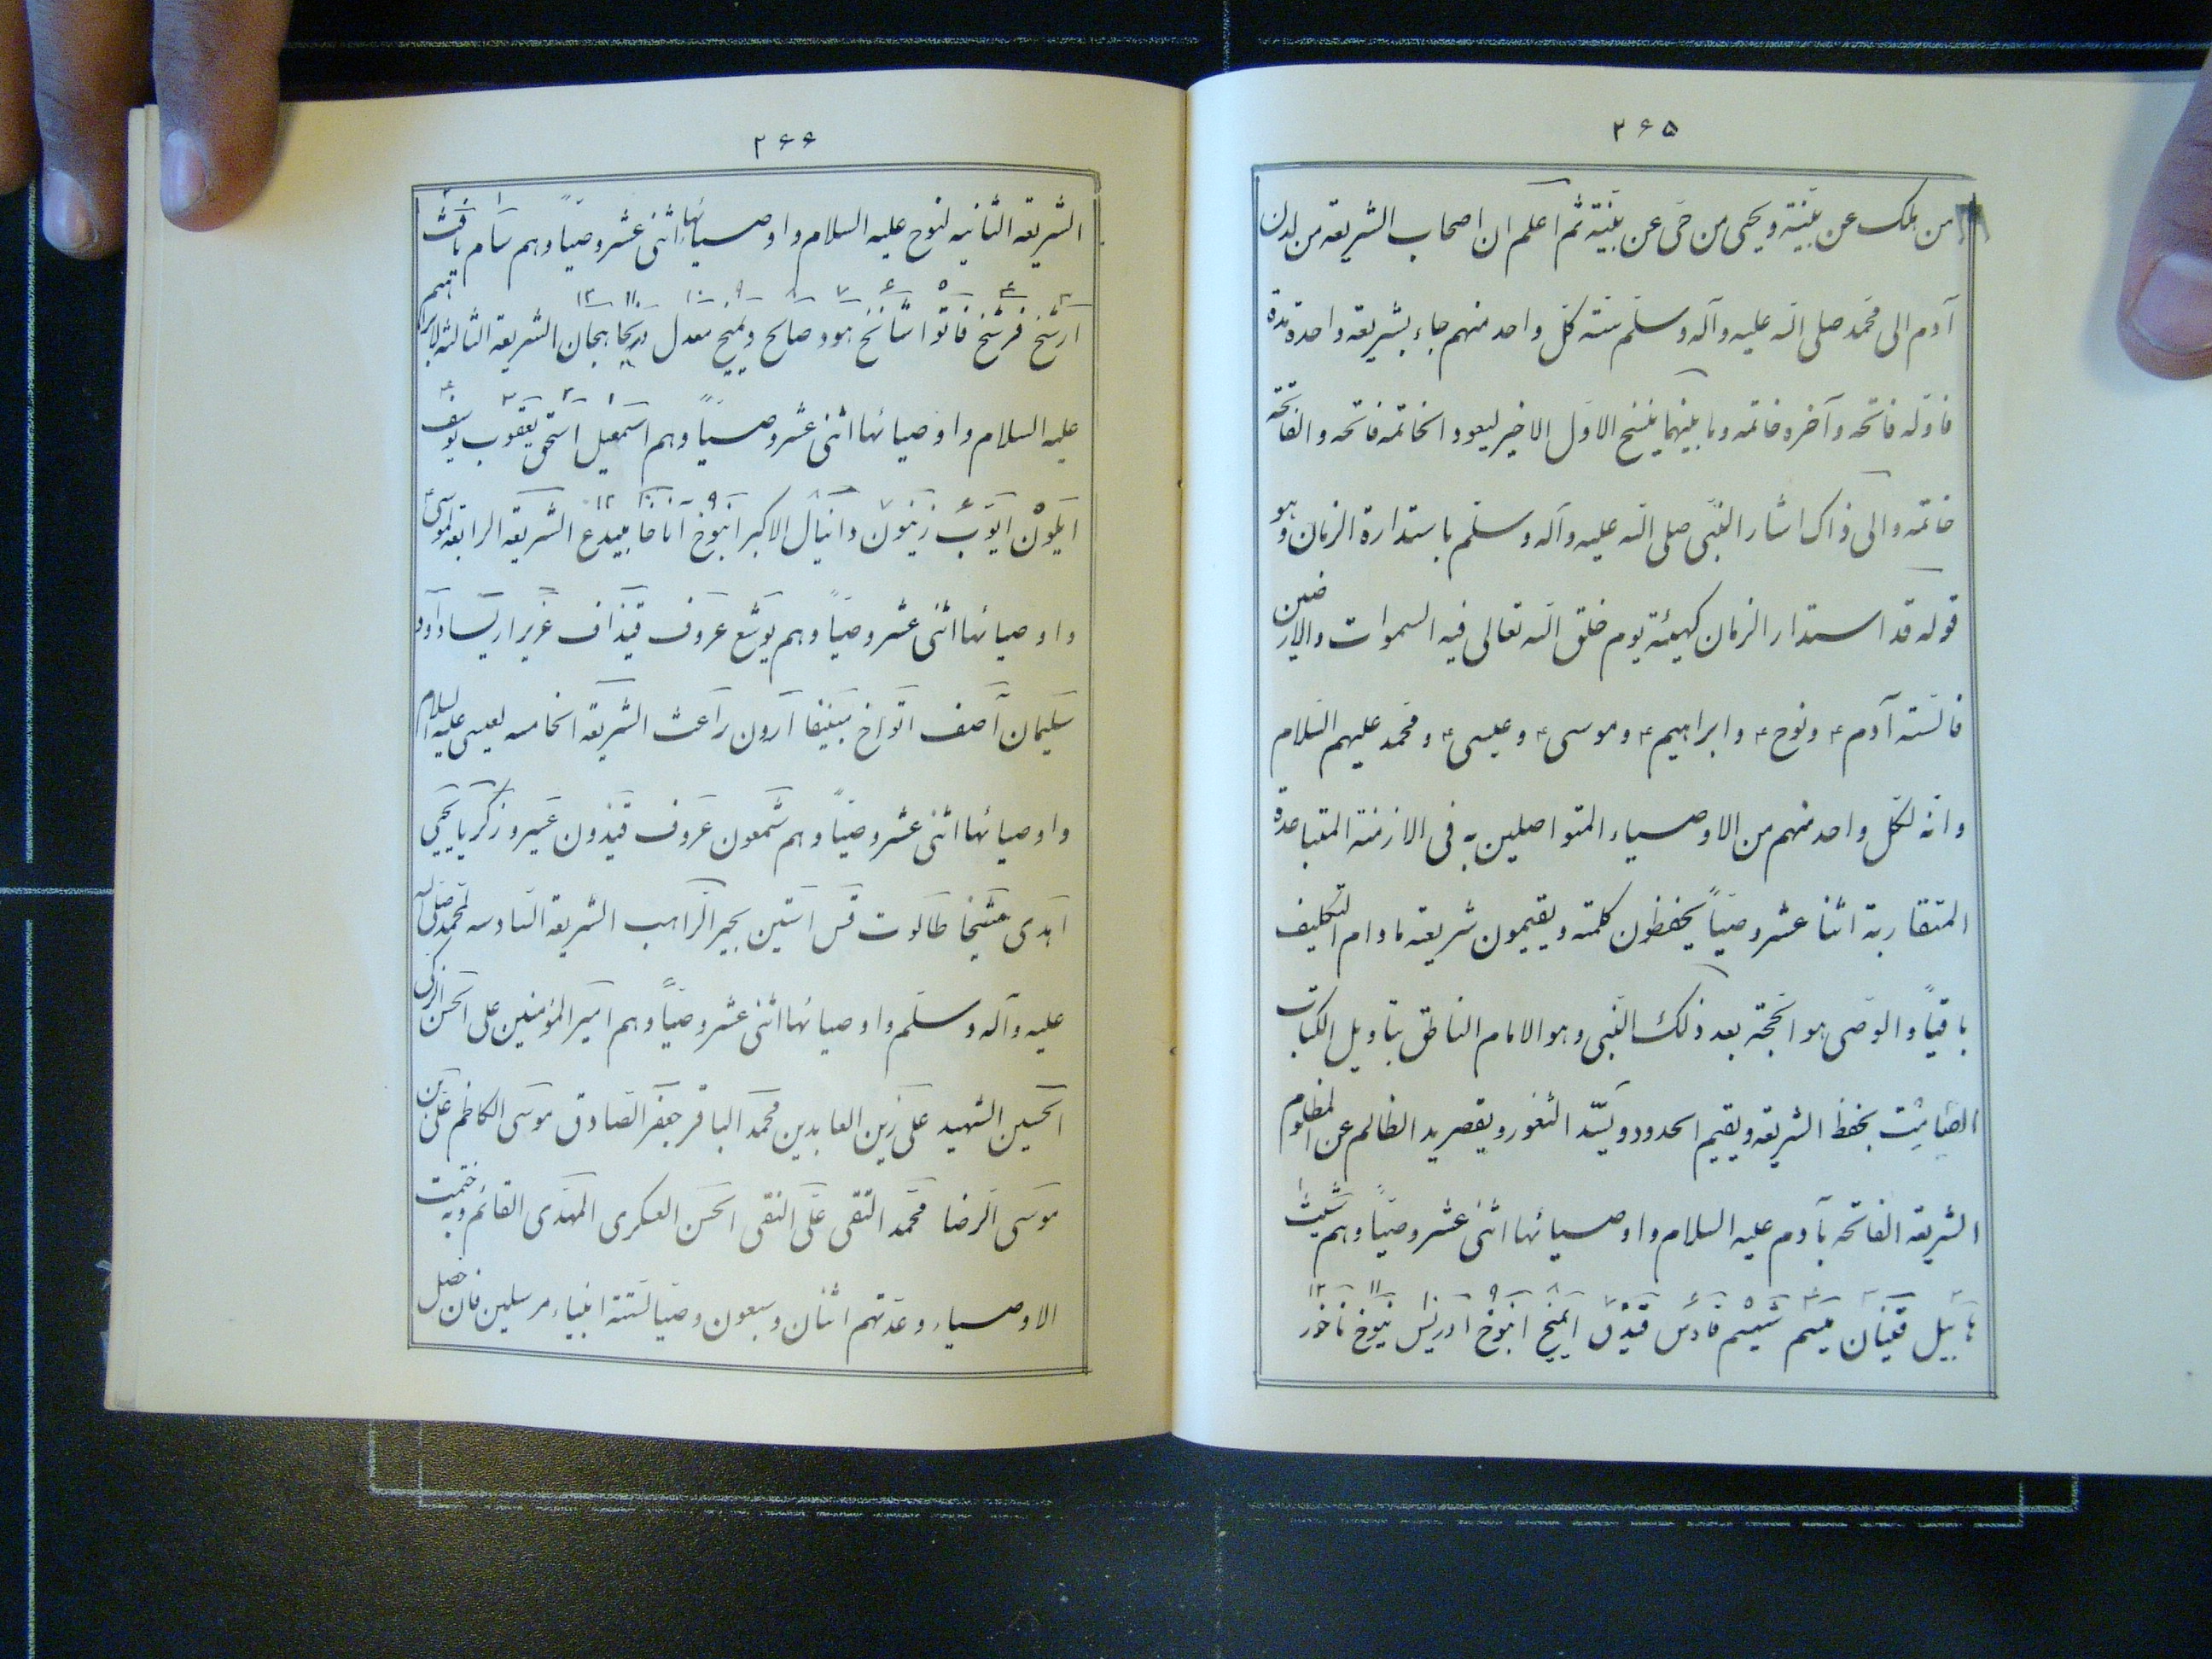 ۲۶۵
من هلک عن بینة و یحیی من حی عن بینة ثم اعلم ان اصحاب الشریعه من لدن
آدم الی محمد صلی الله علیه وآله وسلم ستة کل واحد منهم جاء بشریعه واحدة
فاوله فاتحه وآخره خاتمه وما بینهما ینسخ الاول الاخیر لیعود الخاتمه فاتحه والفاتحة
خاتمه والی ذاک اشار النبی صلی الله علیه وآله وسلم باستدارة الزمان وهو
قوله قد استدار الزمان کهیئة یوم خلق الله تعالی فیه السموات والارضین
فالسته آدم ۴ ونوح ۴ وابراهیم ۴ وموسی ۴ وعیسی ۴ ومحمد علیهم السلام
وانه لکل واحد منهم من الاوصیاء المتواصلین به فی الازمنة المتباعدة
المتقاربة اثنا عشر وصیاً یحفظون کلمته ویقیمون شریعته مادام التکلیف
باقیاً والوصی هو الحجة بعد ذلک النبی وهو الامام الناطق بتاویل الکتاب
الصامت بحفظ الشریعه ویقیم الحدود ویسد الثغور ویقصر ید الظالم عن المظلوم
الشریعه الفاتحه بآدم علیه السلام واوصیائها اثنی عشر وصیاً وهم شیث
هابیل قینان میسم شیسم قادس قیدق ایمیخ اینوخ ادریس دینوخ ناخور
۲۶۶
الشریعه الثانیه لنوح علیه السلام واوصیائها اثنی عشر وصیاً وهم سام یافث
ارشخ فرشخ فاتوا شانخ هود صالح دیمیخ معدل دریخا هجان الشریعه الثالثه لابراهیم
علیه السلام واوصیائها اثنی عشر وصیاً وهم اسمعیل اسحق یعقوب یوسف
ایلون ایوب زینون دانیال الاکبر اینوخ اناخا میبدع الشریعه الرابعه لموسی
واوصیائها اثنی عشر وصیاً وهم یوشع عروف قیذاف عزیر اریسا داود
سلیمان آصف اتواخ منیقا آرون راعث الشریعه الخامسه لعیسی علیه السلام
واوصیائها اثنی عشر وصیاً وهم شمعون عروف قیذون عسیرو زکریا یحیی
اهدی مشیخا طالوت قس استین بحیر الراهب الشریعه السادسه لمحمد صلی الله
علیه وآله وسلم واوصیائها اثنی عشر وصیاً وهم امیر المؤمنین علی الحسن الزکی
الحسین الشهید علی زین العابدین محمد الباقر جعفر الصادق موسی الکاظم علی بن
موسی الرضا محمد التقی علی النقی الحسن العسکری المهدی القائم وبه ختمت
الاوصیاء وعدتهم اثنان وسبعون وصیا لستة انبیاء مرسلین فان حصل